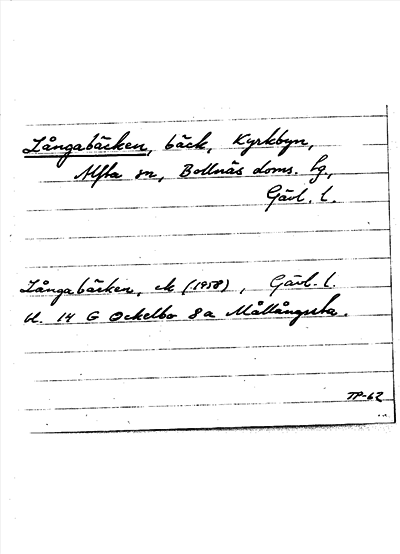 Långabäcken, bäck, Kyrkbyn,
Alfta sn, Bollnäs doms. hg.,
Gävl. l.
Långabäcken, ek (1958), Gävl. l.
bl. 14 G Ockelbo 8a Mållångssta.
TP-62